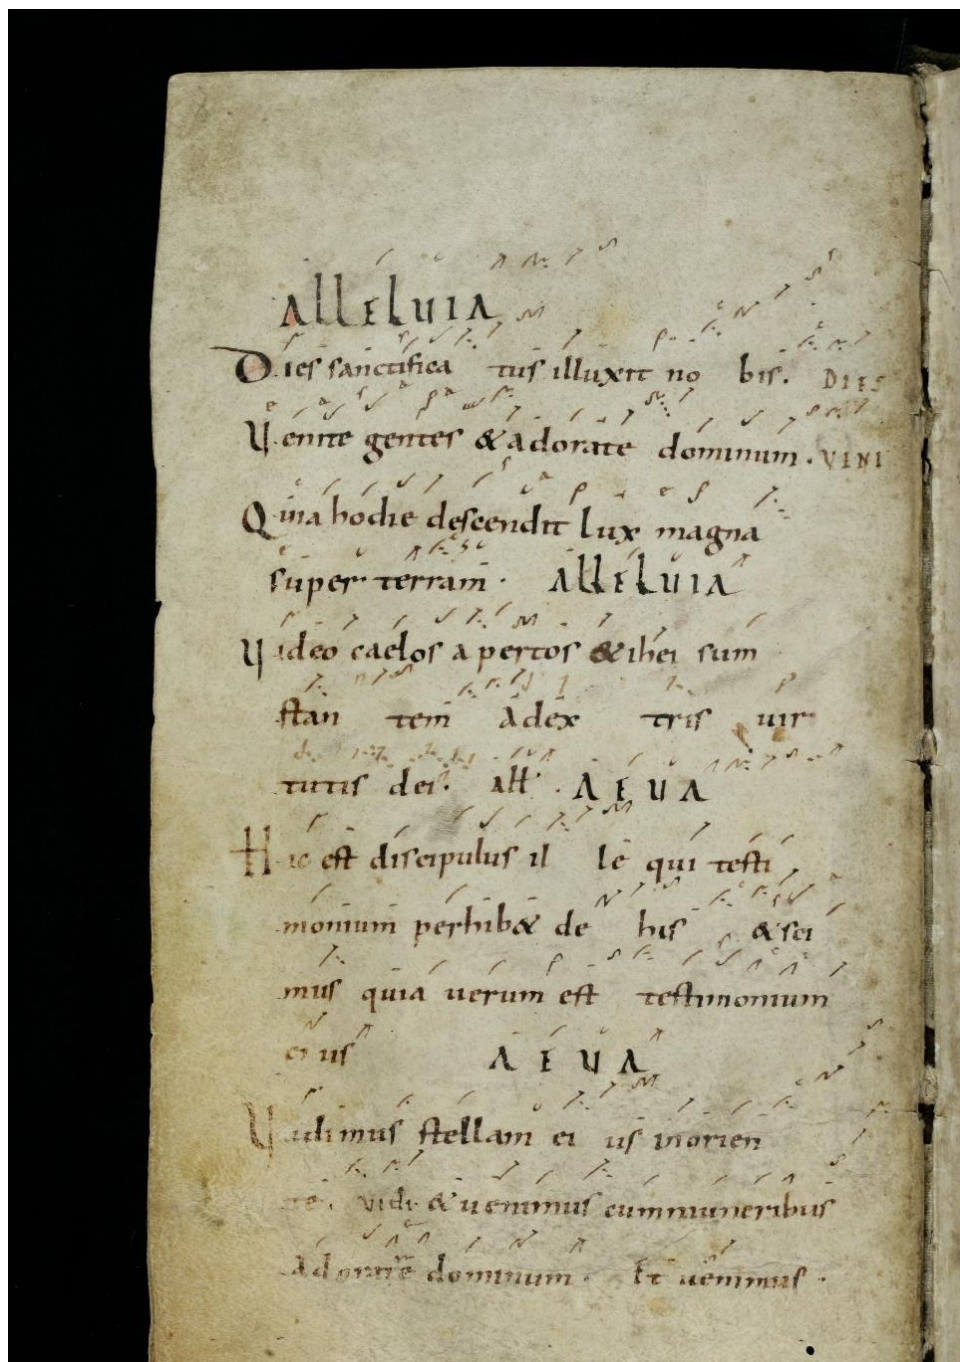 ALLELUIA
Dies sanctifica tus illuxit no bis. DIES
Venite gentes & adorate dominum. VINI
Quia hodie descendit lux magna
super terram. ALLELUIA
Video caelos apertos & ihei sum
stan tem adex tris uir
tutis dei. all. A E U A
Hic est discipulus il le qui testi
monium perhib& de his & sci
mus quia uerum est testimonium
ei us A E U A
Vidimus stellam ei us in orien
te. vidi & uenimus cum muneribus
Adorare dominum. Et uenimus.